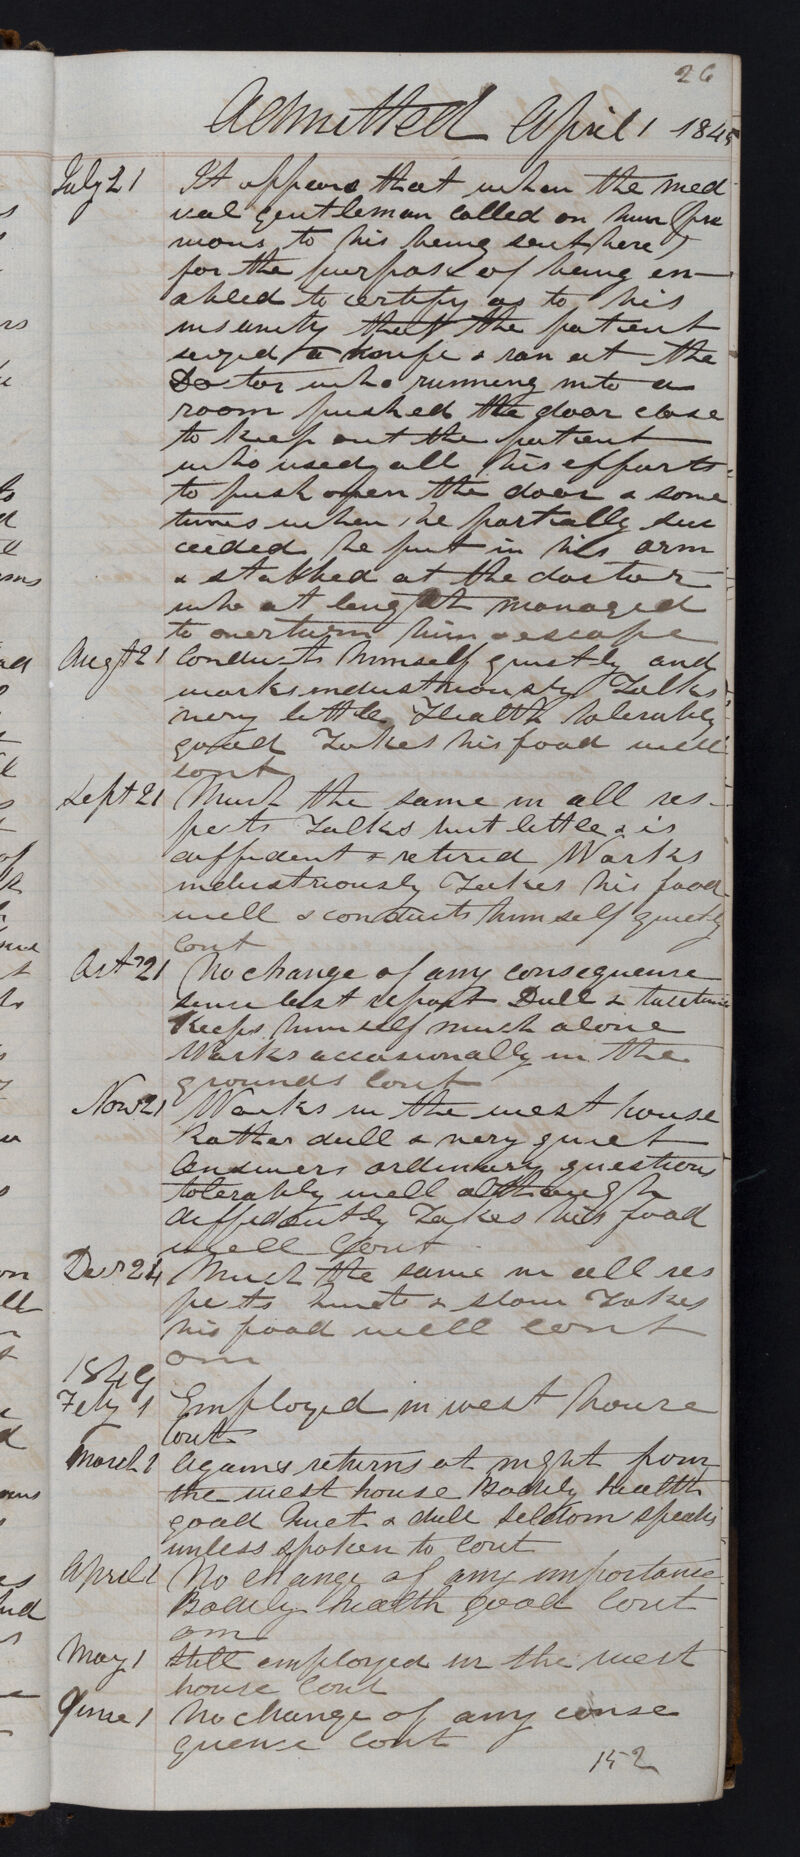 26
Admitted April 1 184
July 21 It appears that when the med
ical gentleman called on him (pre
vious to his being sent here)
for the purpose of being en-
abled to certify as to his
insanity that the patient
seized a knife & ran at the
Doctor who running into a
room pushed the door close
to keep out the patient
who used all his efforts
to push open the door & some
times when he partially suc
ceeded he put in his arm
& stabbed at the doctor
who at length managed
to overturn him & escape
Augt 21 Conducts himself quietly and
works industriously Talks
very little Health tolerably
good Takes his food well
cont
Sept 21 Much the same in all res-
pects Talks but little & is
diffident & retired Works
industriously Takes his food
well & conducts himself quietly
cont
Oct 21 No change of any consequence
since last report Dull & taciturn
Keeps himself much alone
Works occasionally in the
grounds Cont
Nov 21 Works in the west house
Rather dull & very quiet
Answers ordinary questions
tolerably well although
diffidently Takes his food
well Cont
Decr 24 Much the same in all res
pects quiet & slow Takes
his food well cont
om
1849
Feby 1 Employed in west house
Cont
March 1 Again returns at night from
the west house Bodily health
good Quiet & dull Seldom speaks
unless spoken to Cont
April 1 No change of any importance
Bodily health good Cont
om
May 1 Still employed in the west
house Cont
June 1 No change of any conse
quence Cont
152